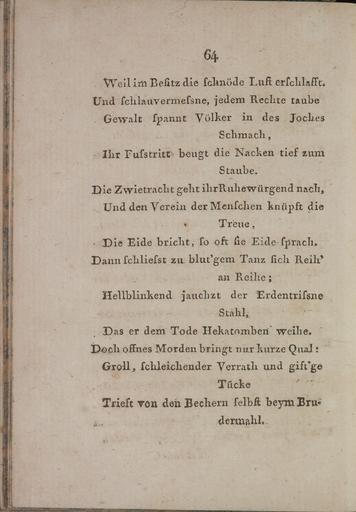 64
Weil im Besitz die schnöde Lust erschlafft.
Und schlauvermessne, jedem Rechte taube
Gewalt spannt Völker in des Joches
Schmach,
Ihr Fusstritt beugt die Nacken tief zum
Staube.
Die Zwietracht geht ihr Ruhewürgend nach,
Und den Verein der Menschen knüpft die
Treue,
Die Eide bricht, so oft sie Eide sprach.
Dann schliesst zu blut'gem Tanz sich Reih'
an Reihe;
Hellblinkend jauchzt der Erdentrissne
Stahl,
Das er dem Tode Hekatomben weihe.
Doch offnes Morden bringt nur kurze Qual:
Groll, schleichender Verrath und gift'ge
Tücke
Trieft von den Bechern selbst beym Bru-
dermahl.